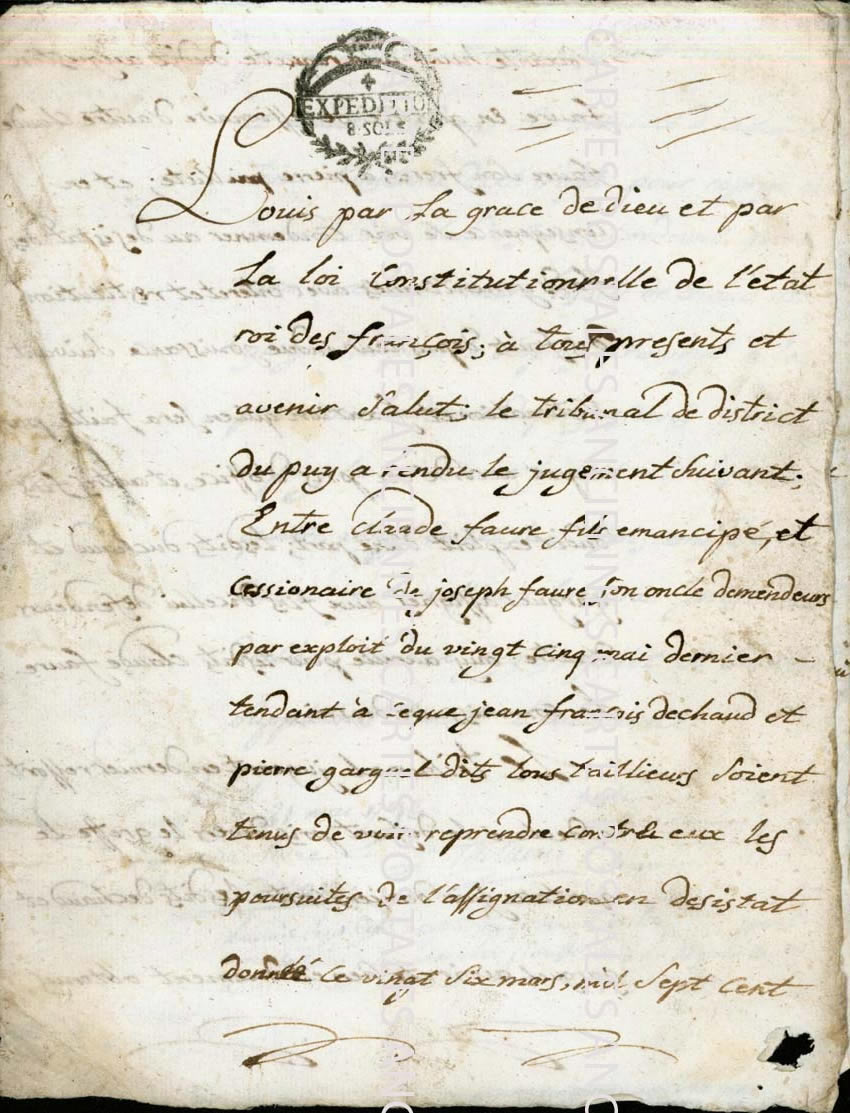 EXPEDITION
8 SOLS
Louis par la grace de dieu et par
la loi Constitutionnelle de l'etat
roi des françois; à tous presents et
avenir Salut; le tribunal de district
du puy a rendu le jugement suivant;
Entre claude faure fils emancipé, et
cessionaire de joseph faure son oncle demendeurs
par exploit du vingt cinq mai dernier
tendant à ceque jean françois dechaud et
pierre dits tous taillieurs soient
tenus de voir reprendre contre eux les
poursuites de l'assignation en desistat
donné le vingt six mars, mil sept cent